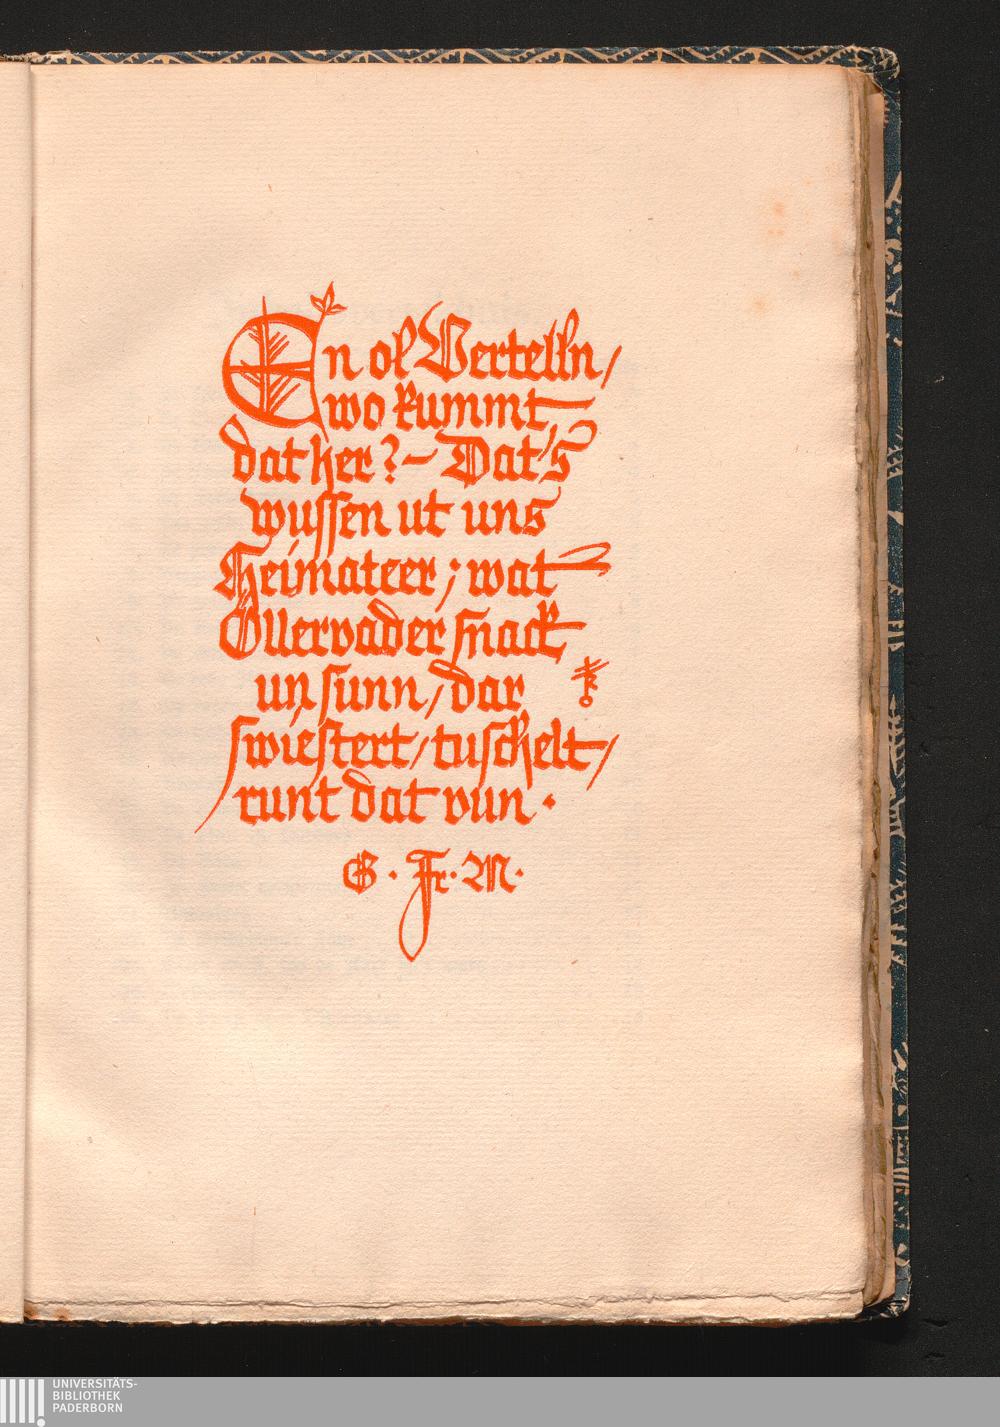 En ol Vertelln,
wo kummt
dat her? – Dat's
wussen ut uns
Heimateer; wat
Öllervader snack
un sunn, dar
swiestert, tuschelt,
runt dat vun.
G. Fr. M.
UNIVERSITÄTS-
BIBLIOTHEK
PADERBORN